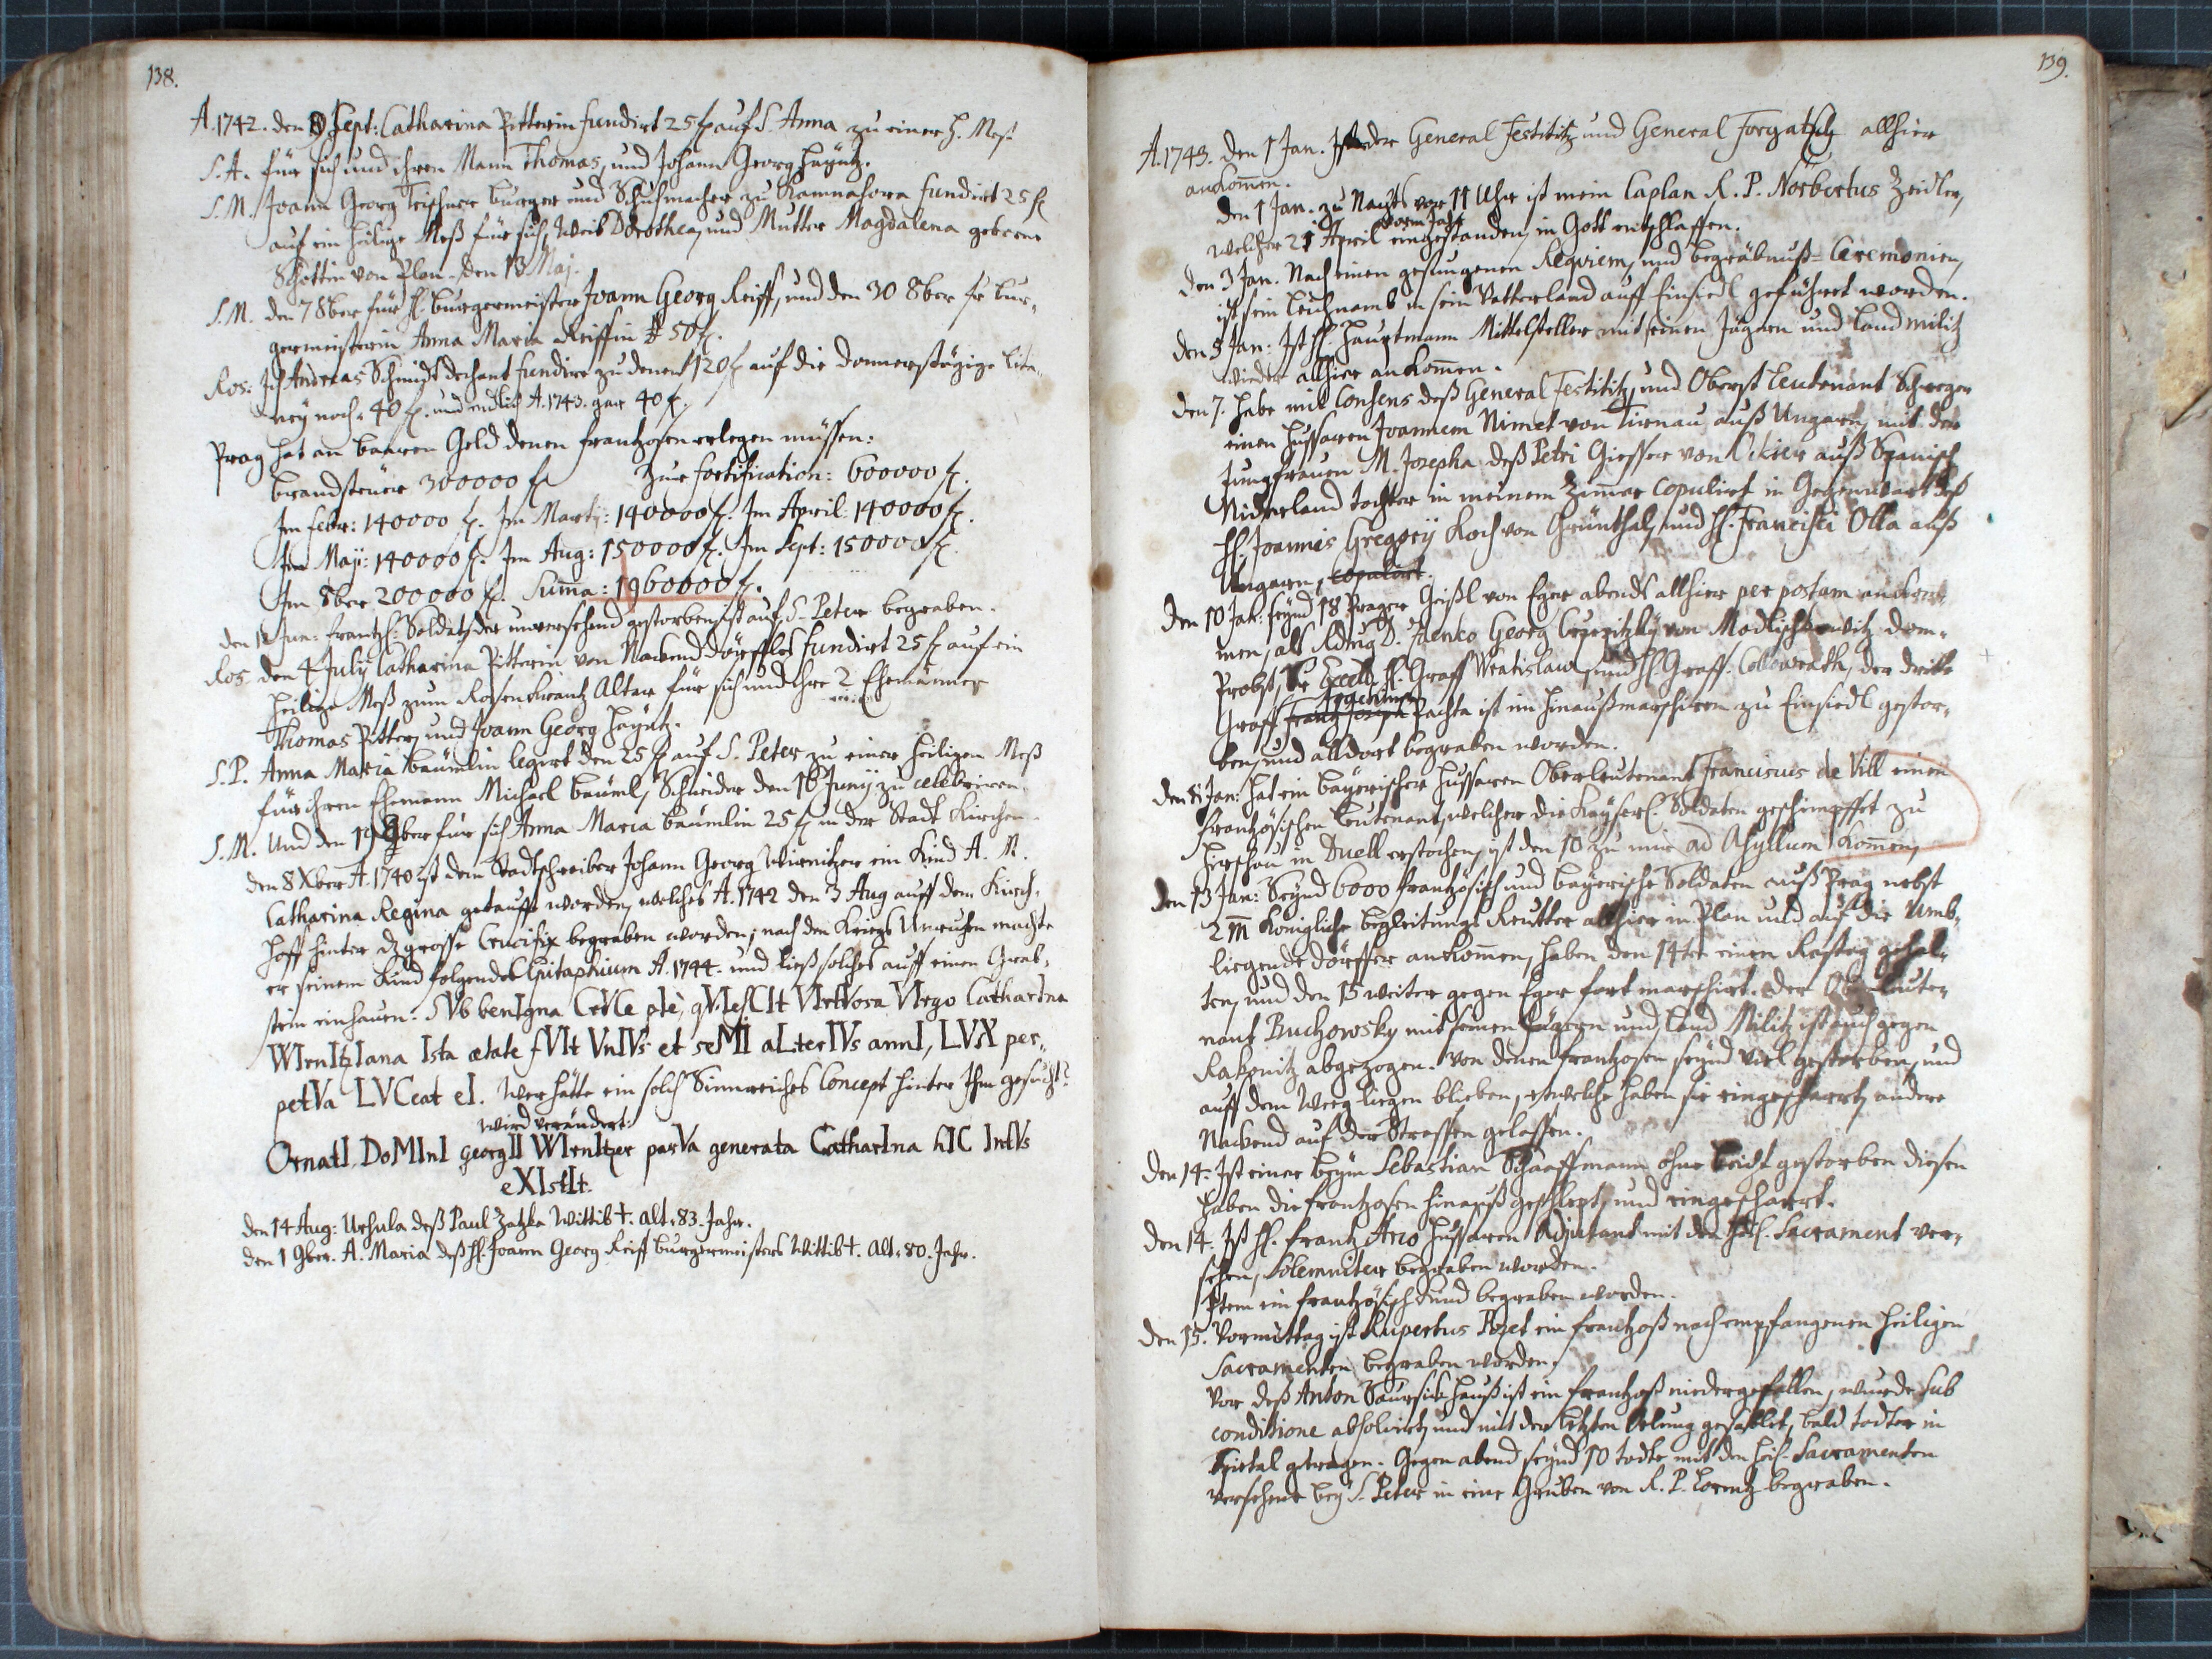 138.
A. 1742. den 9 Sept: Catharina Pitterin fundirt 25 f auf S. Anna zu einer h. Meß
S. A. für sich und ihren Mann Thomas, und Johann Georg Haÿntz.
S. M. Joann Georg Teischner burger und Schuhmacher zu Kamnahora fundirt 25 f
auf ein heilige Meß für sich, Weib Dorothea, und Mutter Magdalena geborne
Schottin von Plan. den 13 Maj.
S. M. den 7 8ber für H. burgermeister Joann Georg Reiff, und den 30 8ber fr bur-
germeisterin Anna Maria Reiffin 50 f.
Ros: Ich Andreas Schmidt dechant fundire zu denen 120 f auf die donnerstägige lita-
neÿ noch 40 f. und endlich A. 1743. gar 40 f.
Prag hat an baaren Geld denen frantzosen erlegen müssen:
brandsteüer 300000 f zur fortification: 600000 f.
Im febr: 140000 f. Im Martÿ: 140000 f. Im April: 140000 f.
Im Maji: 140000 f. Im Aug: 150000 f. Im Sept: 150000 f.
Im 8ber 200000 f. Sum̄a: 1960000 f.
den 12 Jun: frantzh: Soldat, der unversehend gestorben, ist auf S. Peter begraben.
Ros. den 4 Julÿ Catharina Pitterin von Nackend dörfles fundirt 25 f auf ein
heilige Meß zum Rosenkrantz Altar für sich und ihre 2 Ehemänner
Thomas Pitter, und Joann Georg Haÿntz.
S. P. Anna Maria bäumlin legirt den 25 f auf S. Peter zu einer heiligen Meß
für ihren Ehemann Michael bäuml, Schneider den 16 Junÿ zu celebriren.
S. M. Und den 19 9ber für sich Anna Maria bäumlin 25 f in der Stadt Kirchen.
den 8 Xber A. 1740 ist dem Stadtschreiber Johann Georg Wirnitzer ein Kind A. M.
Catharina Regina getaufft worden, welches A. 1742 den 3 Aug auff dem Kirch-
hoff hinter dz grosse Crucifix begraben worden; nach den Kriegs Unruhen machte
er seinem Kind folgendes Epitaphium A. 1744. und ließ solches auff einen Grab-
stein einhauen. SVb benIgna CrVCe pIè, qVIesCIt VIrtVosa VIrgo CatharIna
WIrnItzIana Ista ætate fVIt VnIVs et seMI aLterIVs annI, LVX per-
petVa LVCeat eI. Wer hätte ein solch Sinnreiches Concept hinter Ihm gesucht?
wird verändert:
OrnatI, DoMInI georgII WIrnItzer parVa generata CatharIna hIC IntVs
eXIstIt.
den 14 Aug: Ursula deß Paul Zatzka Wittib †. alt. 83. Jahr.
den 1 9ber. A. Maria deß H. Joann Georg Reiff burgermeisters Wittib †. alt. 80. Jahr.
139.
A. 1743. den 1 Jan. Ist der General Festititz und General Forgatsch allhier
ankom̄en.
den 1 Jan. zu Nachts vor 11 Uhr ist mein Caplan R. P. Norbertus Zeidler,
vorm Jahr
welcher 21 April eingestanden, in Gott entschlaffen.
den 3 Jan. Nach einen gesungenen Reqviem, und begräbnuß-Ceremonien,
ist sein leichnamb in sein Vatterland auff Einsiedl geführet worden.
den 5 Jan: Ist H. Hauptmann Mittelsteller mit seinen Jägern und land militz
wieder allhier ankom̄en.
den 7. habe mit Consens deß General Festititz, und Oberst leutenant Scherzer
einen Hussaren Joannem Nimet von Tirnau auß Ungarn, mit der
Jungfrauen M. Josepha deß Petri Giesser von auß Spanisch
Niderland tochter in meinem Zim̄er copulirt in Gegenwart deß
H. Joannis Gregorÿ Koch von Grünthal, und H. Francisci Olla auß
Ungarn, copulirt.
den 10 Jan: seÿnd 18 Prager Geißl von Eger abends allhier per postam ankom-
men, als Rdmg D. Zdenco Georg von Modlischkowitz dom-
Probst, Sr Excell. H. Graff Wratislaw, und H. Graff Collowrath, der dritte
Graff Frantz Joseph Pachta ist im hinaußmarschiren zu Einsiedl gestor-
ben, und alldort begraben worden.
den 8 Jan: hat ein baÿerischer Hussaren Oberleutenant Franciscus de Vill einen
frantzösischen leutenant, welcher die Kaÿserl. Soldaten geschimpffet zu
Hirschau in Duell erstochen, ist den 10 zu mir ad Asyllum kom̄en,
den 13 Jan: Seÿnd 6000 frantzösisch und baÿerische Soldaten auß Prag nebst
2m̄ Königliche begleitungs Reutter allhier in Plan und auf die umb-
liegende dörffer ankom̄en, haben den 14ten einen Rastag gehal-
ten, und den 15 weiter gegen Eger fort marschirt. Der Ober leute-
nant Buchowsky mit seinen Jägern und land Militz ist auch gegen
Rakonitz abgezogen. Von denen frantzosen seÿnd viel gestorben, und
auff dem Weeg liegen blieben, etwelche haben sie eingescharrt, andere
Nackend auf der Strassen gelassen.
den 14. Ist einer beÿm Sebastian Schaaffmann ohne beicht gestorben diesen
haben die frantzosen hinauß geschlept, und eingescharrt.
den 14. Ist H. Frantz Arco Hussaren Adjutant mit den Sacrament ver-
sehen, Solemniter begraben worden.
Item ein frantzösisch Kind begraben worden.
den 15. Vormittag ist Rupertus Pozet ein frantzoß nach empfangenen heiligen
Sacramenten begraben worden.
Vor deß Anton Hauß ist ein frantzoß niedergefallen, wurde sub
conditione absolvirt, und mit der letzten Oelung gesalbet, bald todter in
Spietal getragen. Gegen abend seÿnd 10 todte mit den heil. Sacramenten
versehene beÿ S. Peter in eine Gruben von R. P. Lorentz begraben.